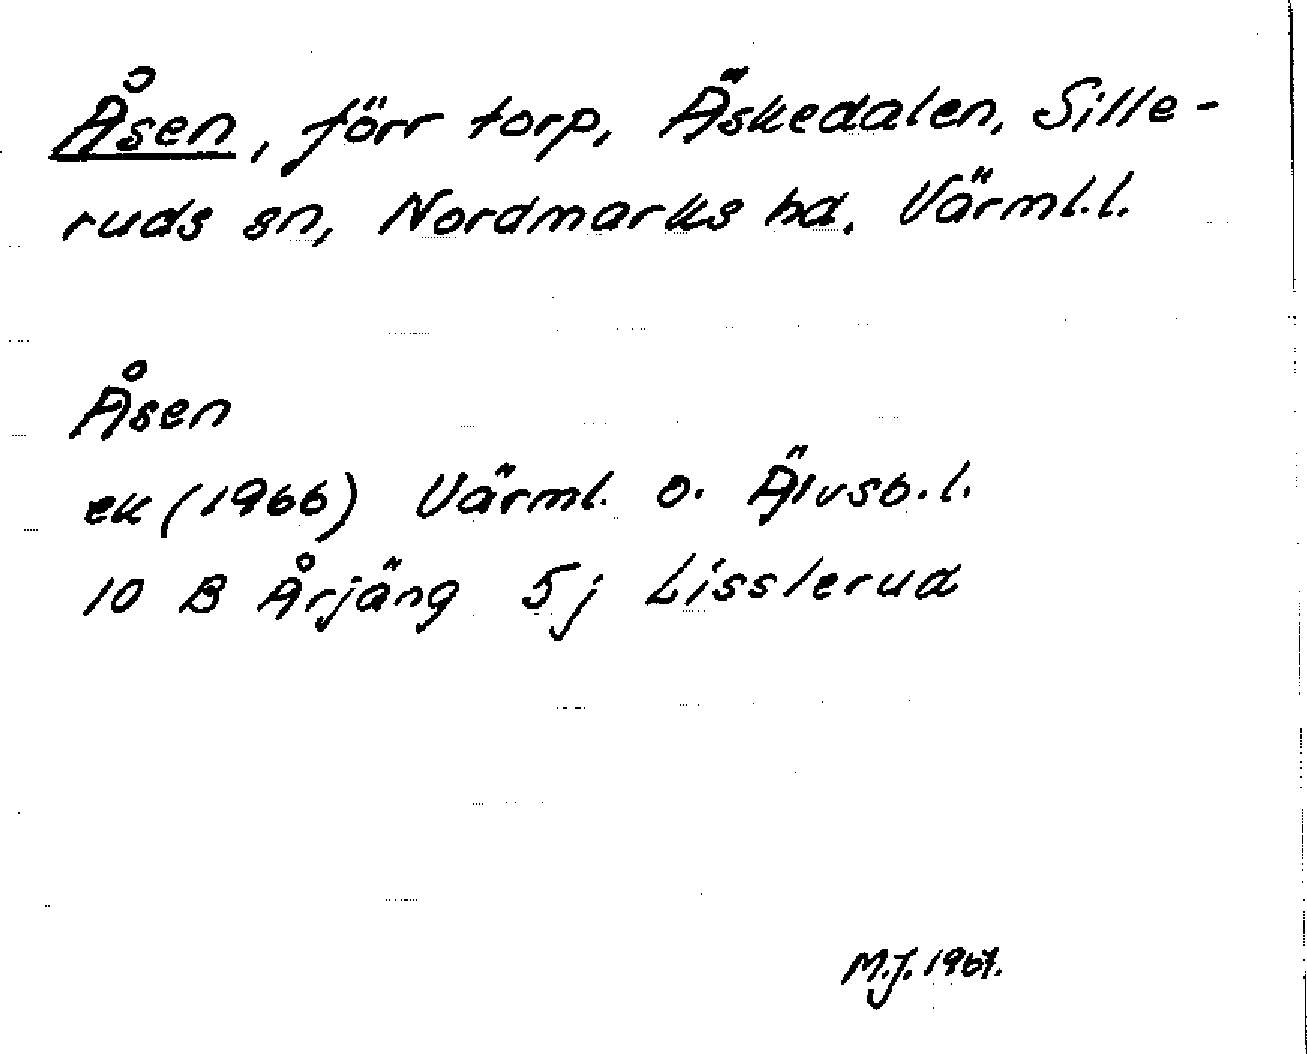 Åsen, förr torp, Äskedalen, Sille-
ruds sn, Nordmarks hd. Värml.l.
Åsen
ek (1966) Värml. o. Älvsb.l.
10 B Årjäng 5j Lisslerud
M.J. 1967.